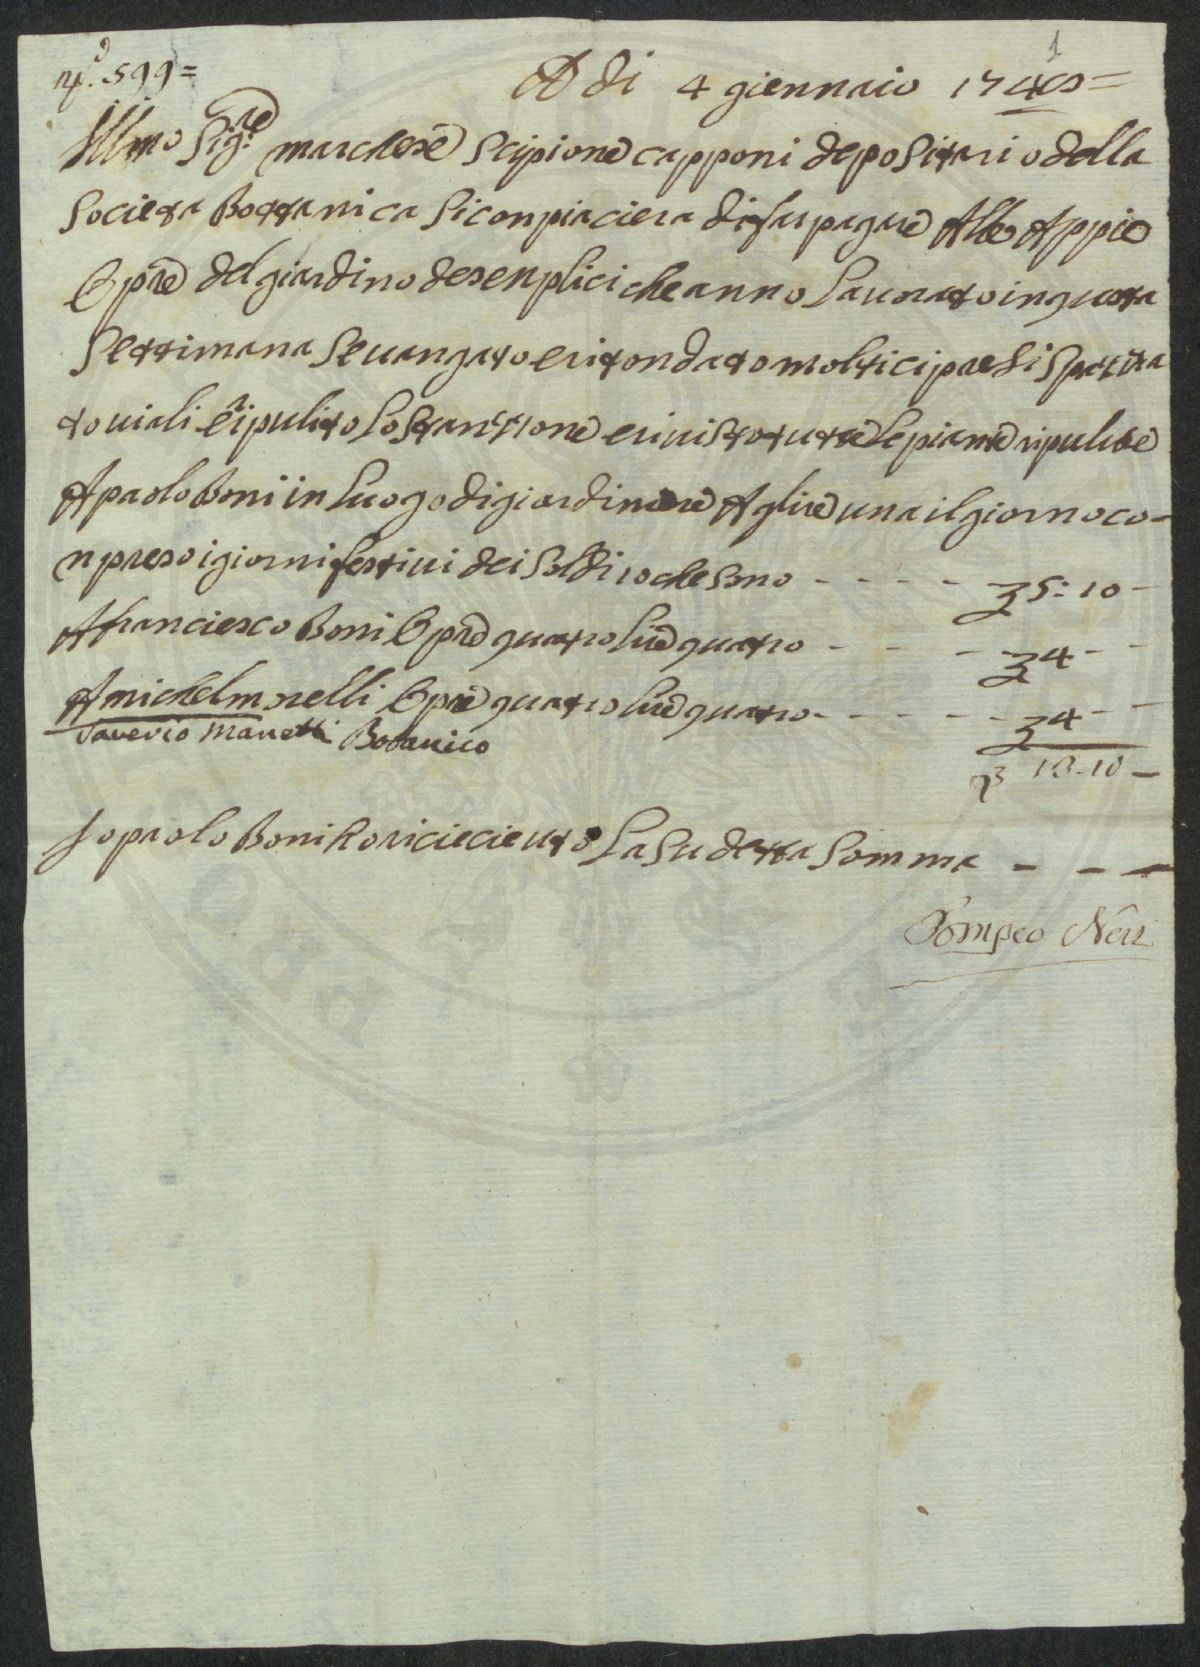 N.º 599=
1
A di 4 giennaio 174
Illmo Sigre marchese Scipione capponi depositario della
Societa Bottanica si conpiaciera di far pagare Alle Appie
Opre del giardino de senplici che anno Lavorato in questa
Settimana Se vangato e ritondato molti cipresi spatsa
to viali e ripulito Lo Stantsone e rivisto tutte Le piante ripulite
A paolo Boni in Luogo di giardiniere A glire una il giorno co-
npreso i giorni festivi dei Soldi 10 che Sono - - - - 5: 10 -
A franciesco Boni Opre quatro lire quatro - - - 4 - -
A michel morelli Opre quatro lire quatro - - - - - 4 - -
Saverio Manetti Botanico
13.10 -
Jo paolo Boni ho riciecieuto La Sudetta Somma - - -
Pompeo Neri